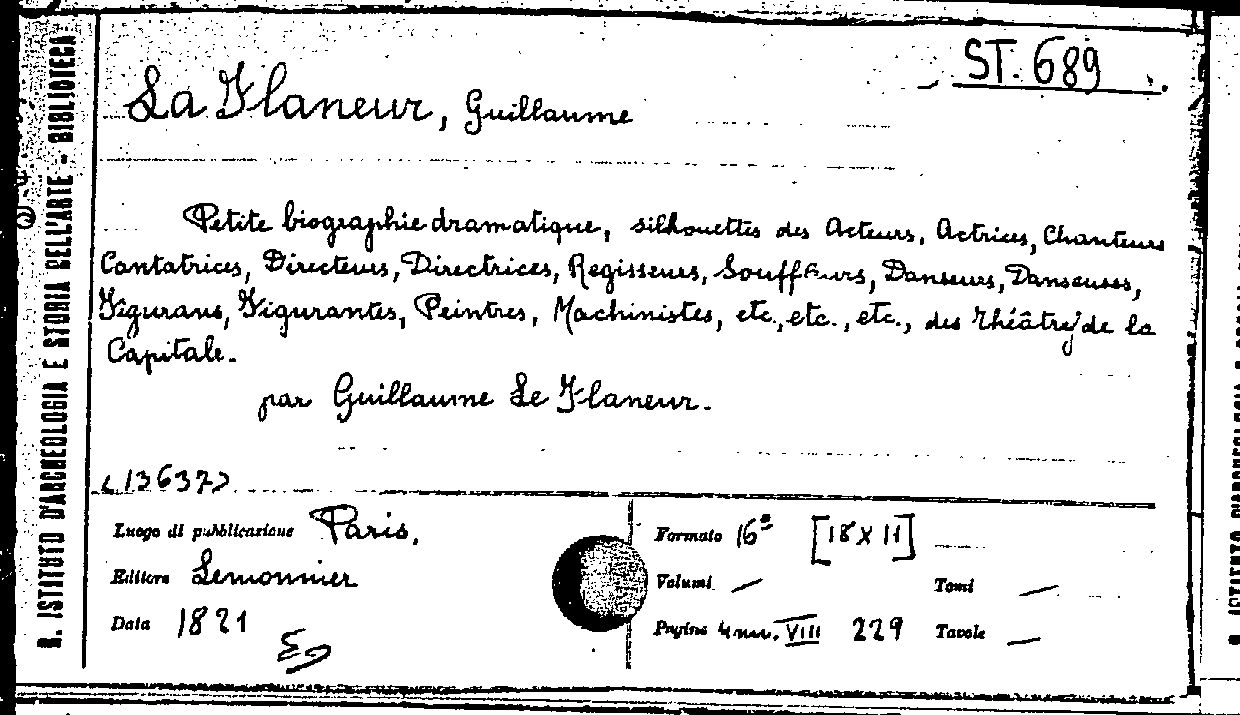 R. ISTITUTO D'ARCHEOLOGIA E STORIA DELL'ARTE - BIBLIOTECA
ST. 689
La Flaneur, Guillaume
Petite biographie dramatique, silhouettes des Acteurs, Actrices, Chanteurs
Cantatrices, Directeurs, Directrices, Regisseurs, Souffleurs, Danseurs, Danseuses,
Figurans, Figurantes, Peintres, Machinistes, etc., etc., etc., des théâtre de la
Capitale.
par Guillaume Le Flaneur.
(13637)
Luogo di pubblicazione Paris.
Formato 16° [18 X 11]
Editore Lemonnier
Volumi — Tomi —
Data 1821
Pagine VIII 229 Tavole —